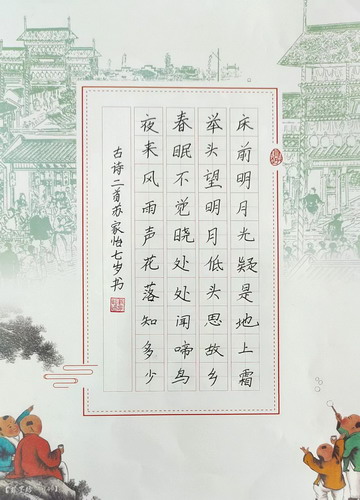 床前明月光疑是地上霜
举头望明月低头思故乡
春眠不觉晓处处闻啼鸟
夜来风雨声花落知多少
古诗二首苏家怡七岁书